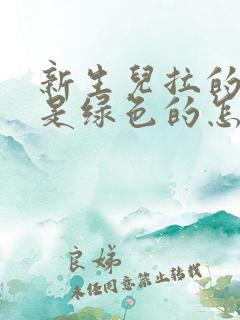 新生兒拉的
是绿色的怎
良娣
未经同意禁止转载